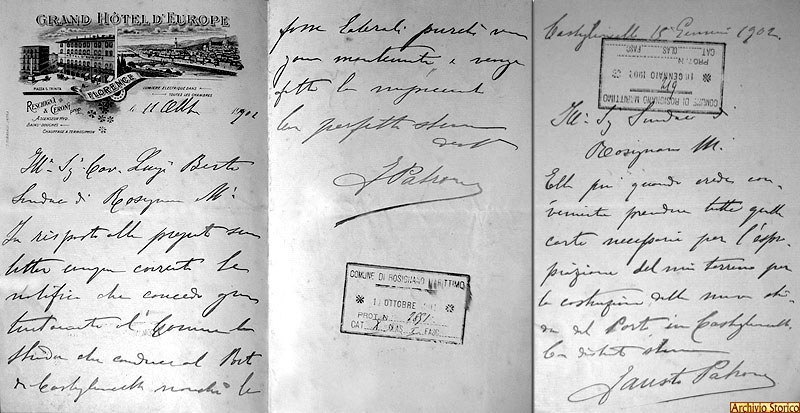 GRAND HÔTEL D'EUROPE
PIAZZA S. TRINITA
FLORENCE
LUMIÈRE ÉLECTRIQUE DANS
TOUTES LES CHAMBRES
RESCHIGNI & CERONI
ASCENSEUR HYD.
BAINS-DOUCHES
CHAUFFAGE À TERMOSIPHON
11 Ott. 1902
Ill. Sig. Cav. Luigi Berti
Sindaco di Rosignano Mo
In risposta alla pregiata sua
lettera cinque corrente le
notifico che concedo gra
tuitamente al Comune la
strada che conduce al Porto
di Castiglioncello nonchè le
fosse laterali purchè ven
gano mantenute e venga
fatta la
Con perfetta stima
F Patrone
COMUNE DI ROSIGNANO MARITTIMO
OTTOBRE
PROT. N.
CAT. CLAS. FASC.
Castiglioncello 15 Gennaio 1902
COMUNE DI ROSIGNANO MARITTIMO
GENNAIO 190
PROT. N.
CAT. CLAS. FASC.
Ill. Sig Sindaco
Rosignano M.
Ella può quando crede con-
veniente prendere tutte quelle
carte necessarie per l'espro-
priazione del mio terreno per
la costruzione della nuova stra
da del Porto in Castiglioncello
Con distinta stima
Fausto Patrone
Archivio Storico